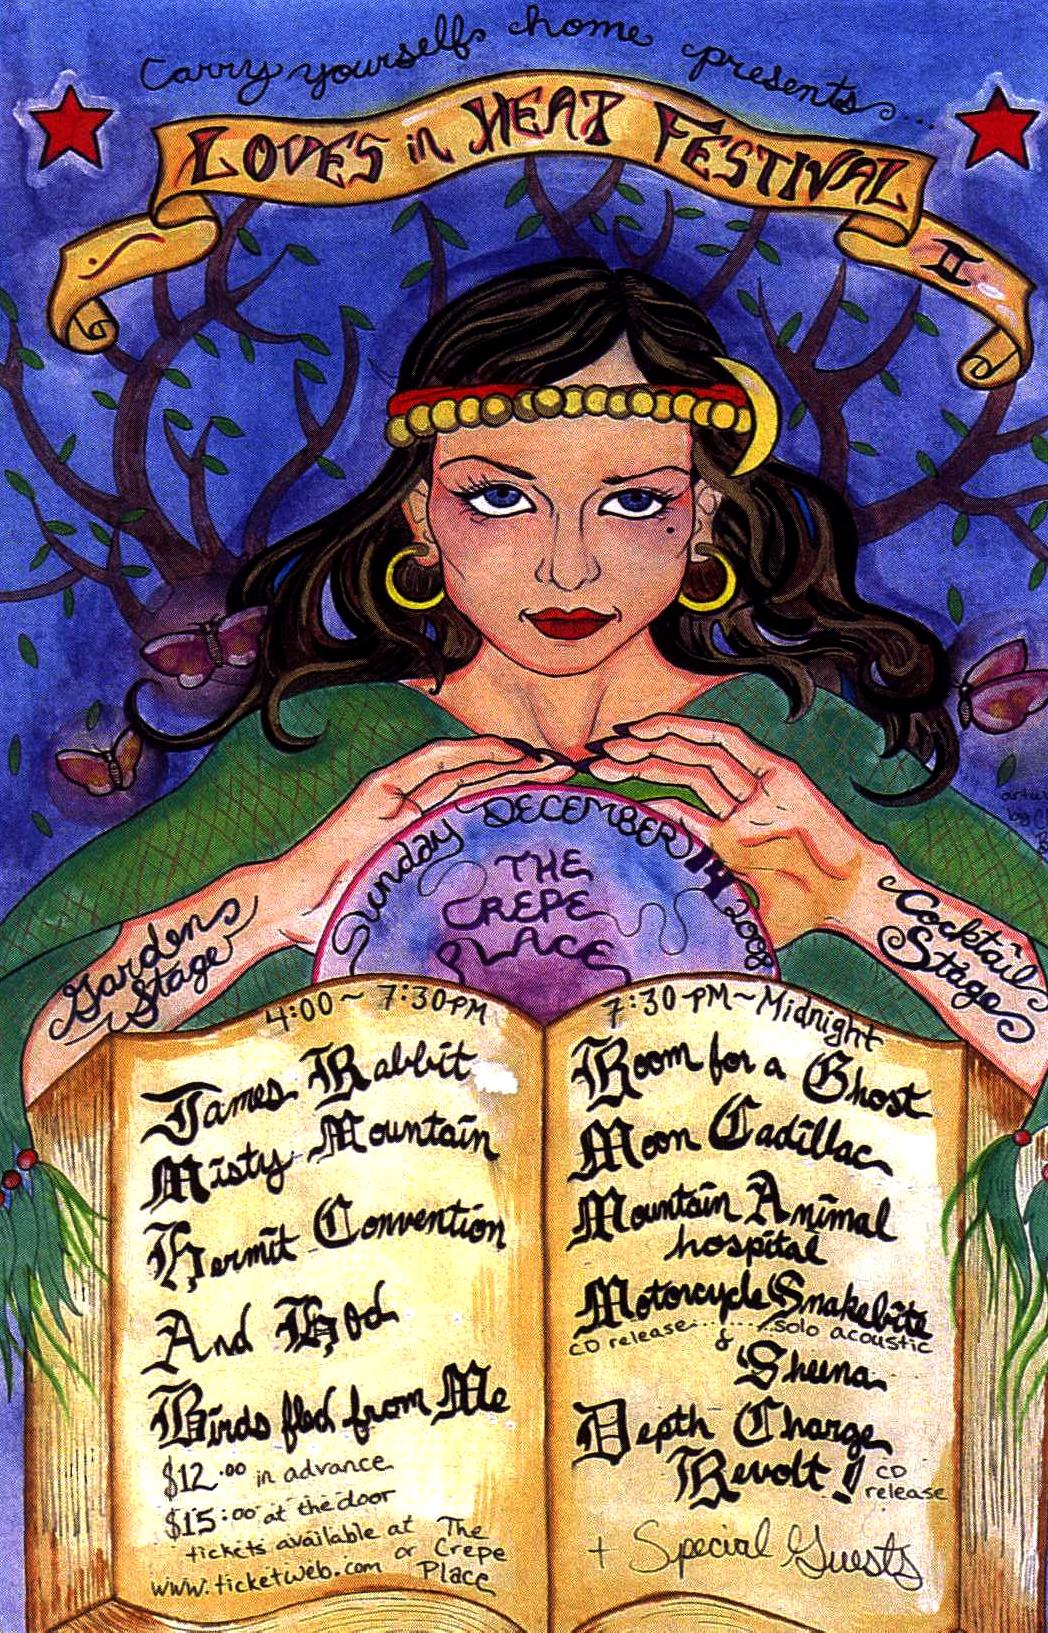 Carry yourself home presents...
LOVES in HEAT FESTIVAL
II
Sunday DECEMBER 14 2008
THE
CREPE
PLACE
Gardens
Stage
Cocktail
Stage
4:00 ~ 7:30PM
James Rabbit
Misty Mountain
Hermit Convention
And Hod
Birds fled from Me
$12.00 in advance
$15:00 at the door
tickets available at
www.ticketweb.com or The
Crepe
Place
7:30-PM~Midnight
Room for a Ghost
Moon Cadillac
Mountain Animal
hospital
Motorcycle Snakebite
CD release........solo acoustic
&
Sheena
Depth Charge
Revolt! CD
release
+ Special Guests